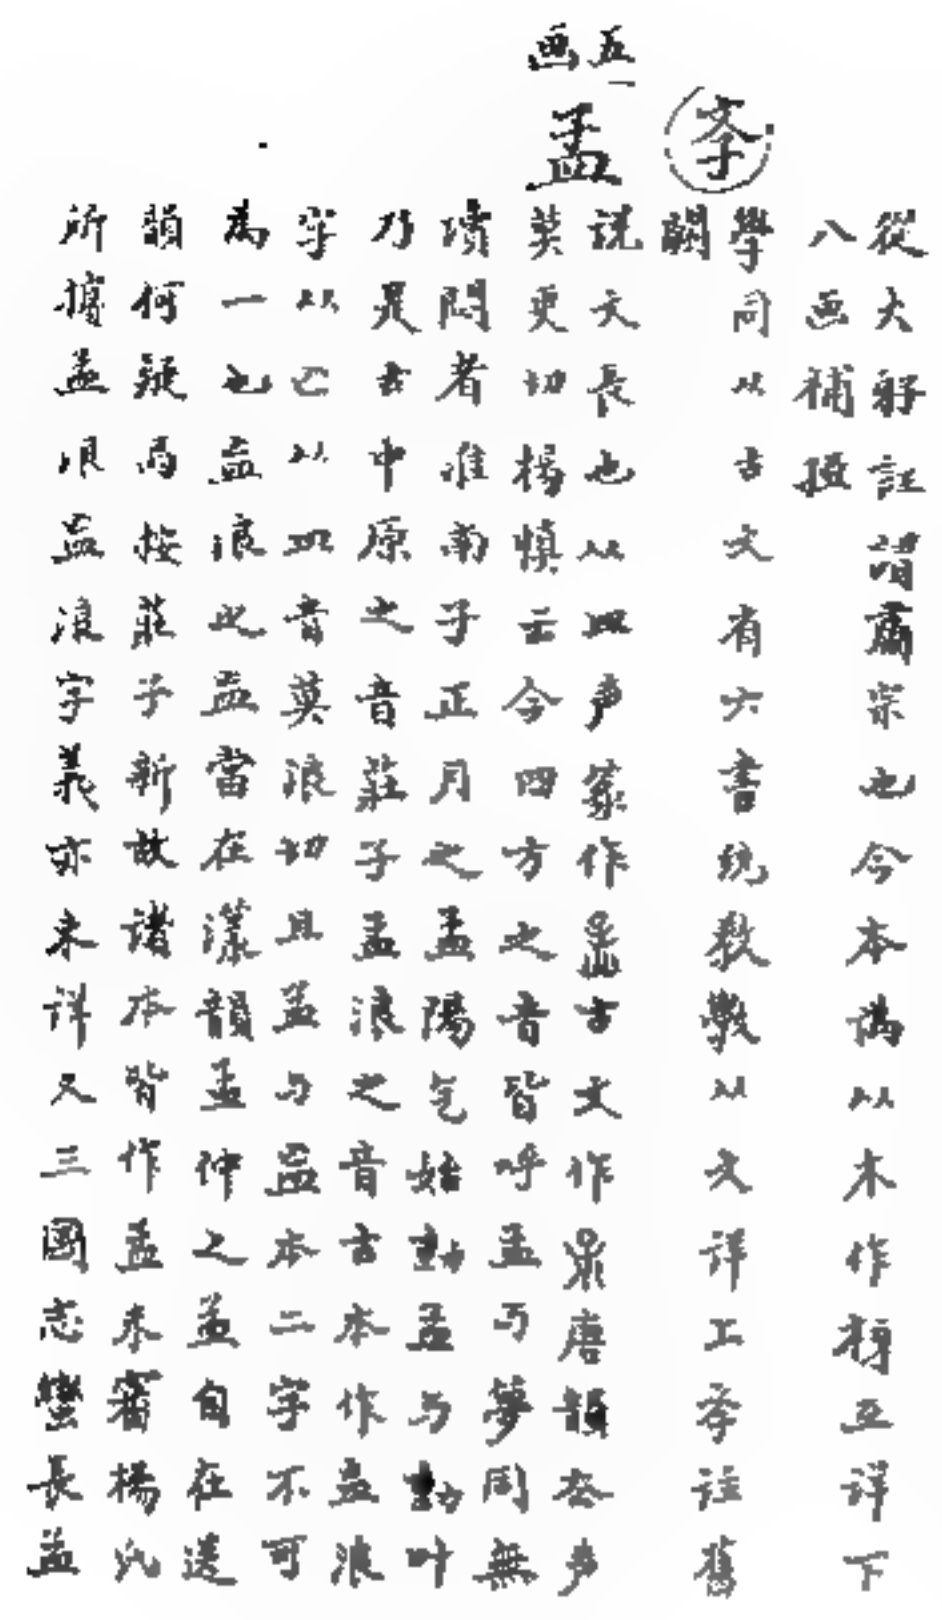 從大𤕫註謂肅宗也今本譌从木作𣐈互详下
八画補摭
斈
學同从古文有六書统教斅从文详工斈注舊
闕
五画
孟
説文長也从皿声篆作古文作唐韻厺声
莫更切楊慎云今四方之音皆呼孟与夢同無
瀆問者淮南子正月之孟陽气始動孟与動叶
乃是古中原之音莊子孟浪之音古本作孟浪
字从亡从皿音莫浪切且孟与孟本二字不可
為一也孟浪之孟當在漾韻孟仲之孟自在送
韻何疑焉按莊子新故諸本皆作孟未審楊氏
所據孟浪孟浪字義亦未详又三國志蠻長孟